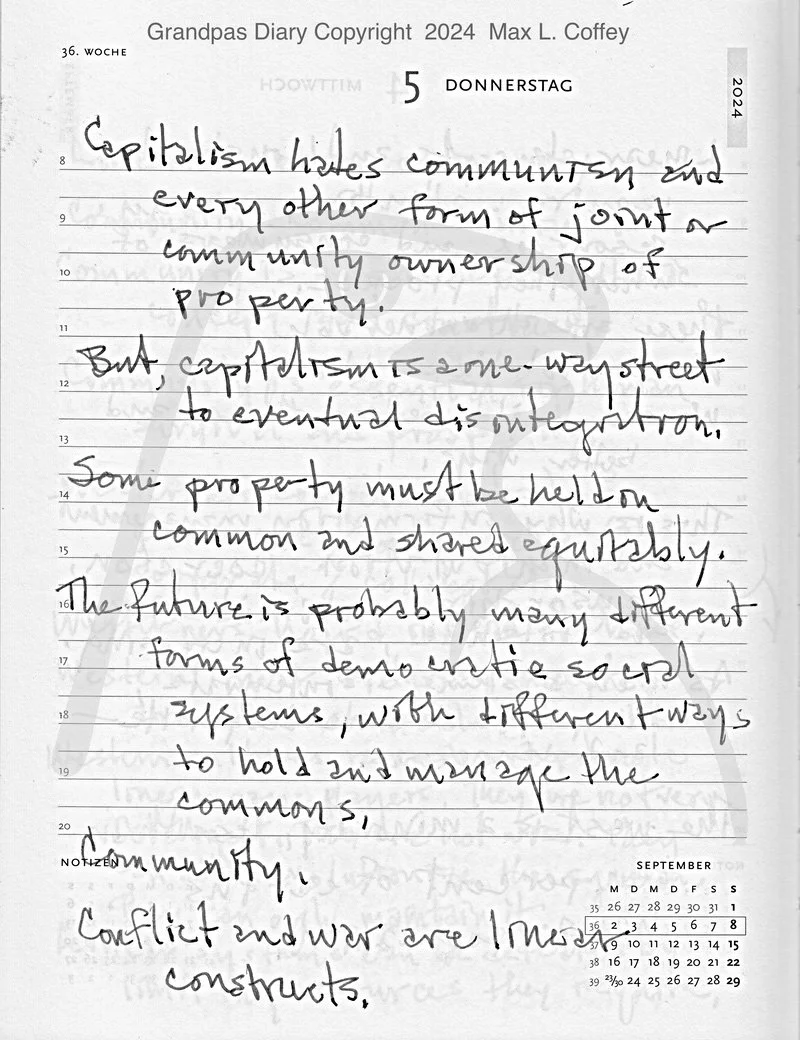 Grandpas Diary Copyright 2024 Max L. Coffey
36. WOCHE
5 DONNERSTAG
2024
8 Capitalism hates communism and
9 every other form of joint or
10 community ownership of
property.
11
12 But, capitalism is a one-way street
to eventual disintegration.
13
14 Some property must be held in
15 common and shared equitably.
16 The future is probably many different
17 forms of democratic social
18 systems, with different ways
19 to hold and manage the
20 commons,
NOTIZEN Community.
Conflict and war are linear
constructs.
SEPTEMBER
M D M D F S S
35 26 27 28 29 30 31 1
36 2 3 4 5 6 7 8
37 9 10 11 12 13 14 15
38 16 17 18 19 20 21 22
39 23/30 24 25 26 27 28 29